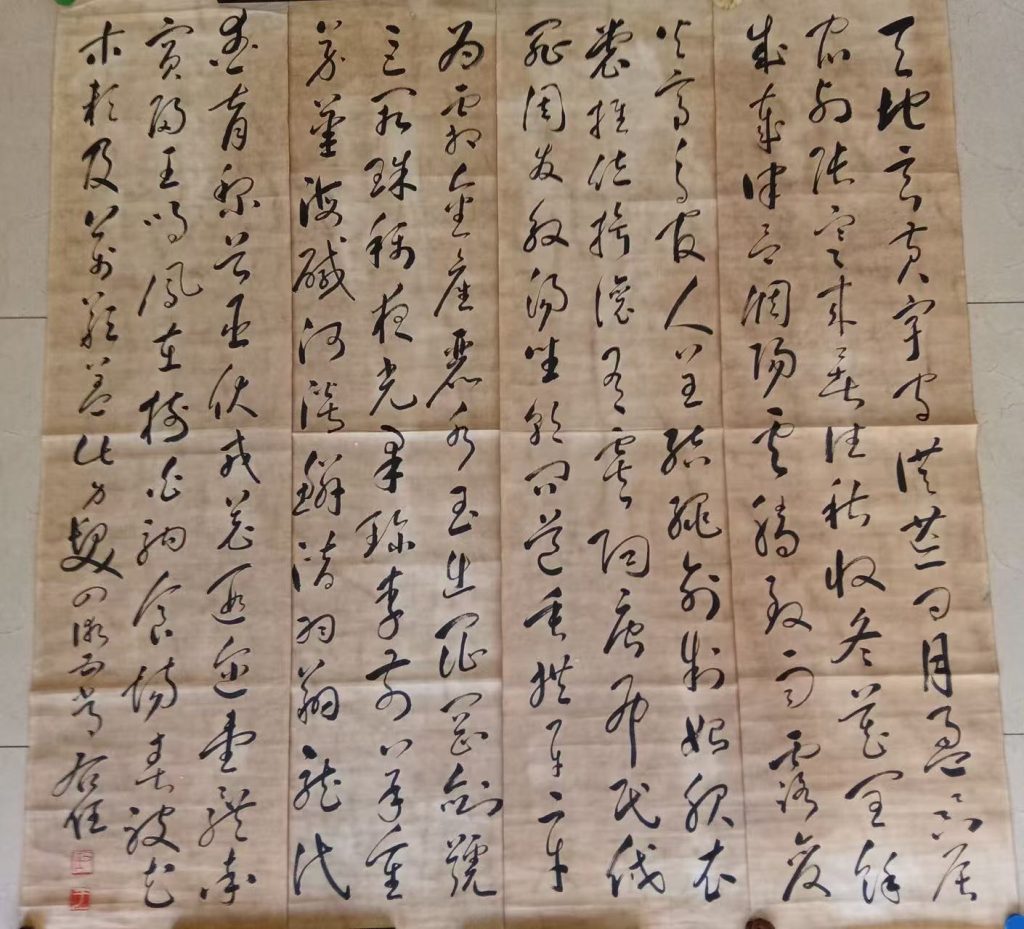 天地玄黃宇宙洪荒日月盈昃辰
宿列張寒來暑往秋收冬藏閏餘
成歲律呂調陽雲騰致雨露結
火帝鳥官人皇始制文字乃服衣
裳推位讓國有虞陶唐弔民伐
罪周發殷湯坐朝問道垂拱平章
為霜金生麗水玉出崑岡劍號
巨闕珠稱夜光果珍李柰菜重
芥薑海鹹河淡鱗潛羽翔龍師
愛育黎首臣伏戎羌遐邇壹體率
賓歸王鳴鳳在樹白駒食場化被草
木賴及萬方蓋此身髮四大五常 右任